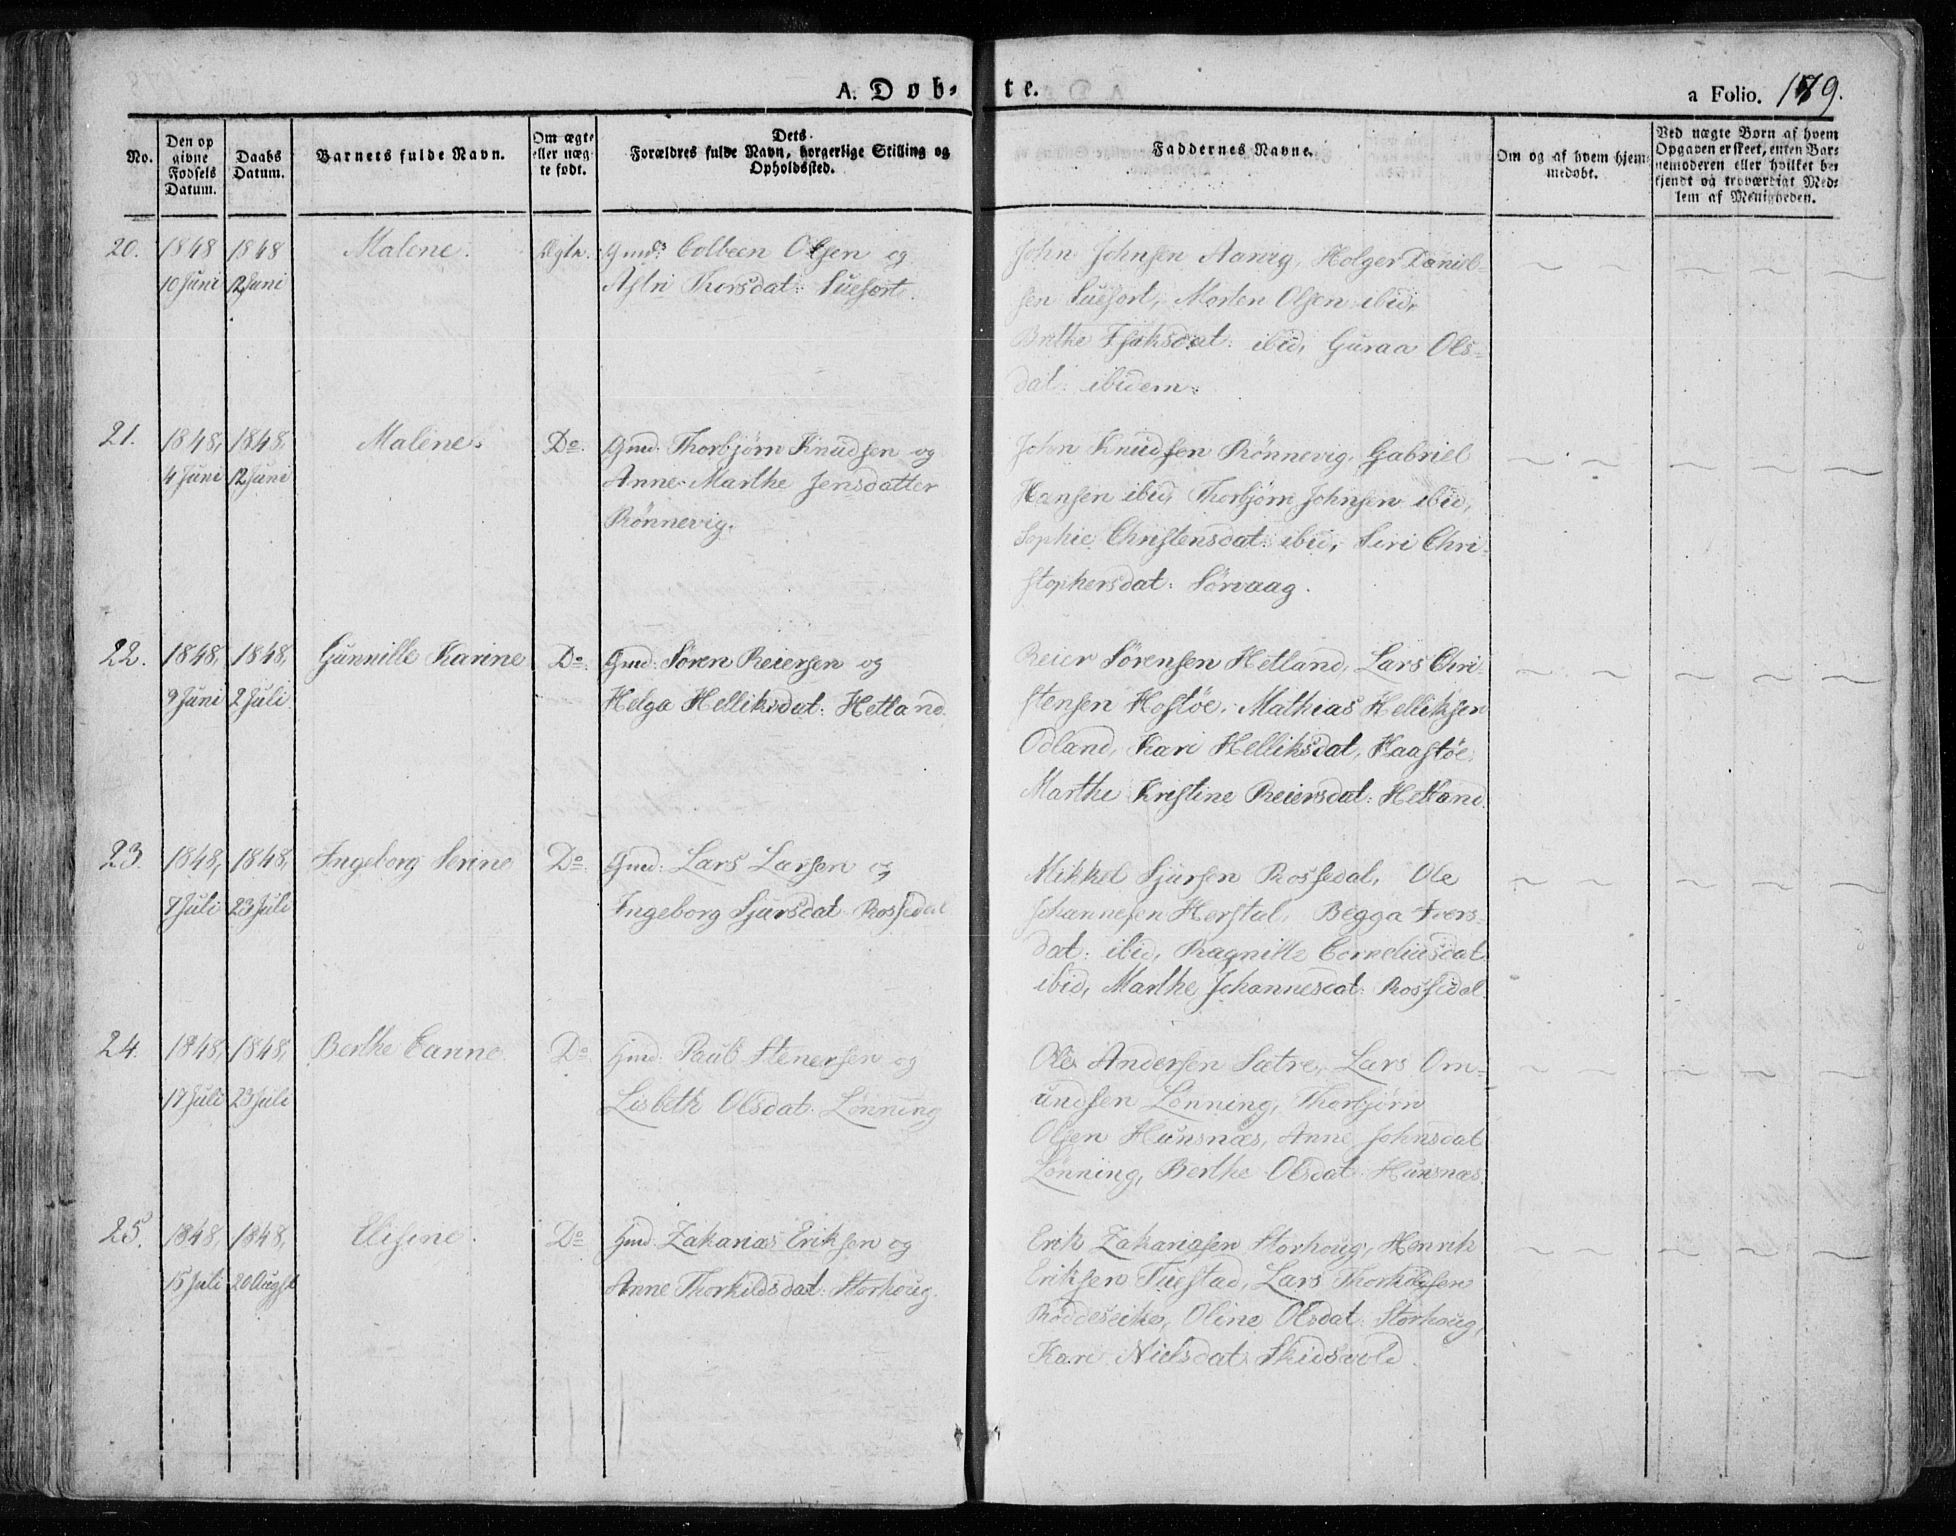 A. Døb-
te.
a Folio. 179.
No.
Den opgivne Fødsels Datum.
Daabs Datum.
Barnets fulde Navn.
Om ægte eller uægte født.
Dets Forældres fulde Navn, borgerlige Stilling og Opholdssted.
Faddernes Navne.
Om og af hvem hjemmedøbt.
Ved uægte Børn af hvem Opgaven er skeet, enten Barnemoderen eller hvilket bekjendt og troværdigt Medlem af Menigheden.
20.
1848
10 Juni
1848
12 Juni
Malene.
Ægte.
Gmd: Colbeen Olsen og
Astri Thorsdat: Suefort.
John Johnsen Aanrg, Holger Daniel-
sen Suefort, Morten Olsen ibid,
Brithe Isaksdat: ibid, Guraa Ols-
dat: ibidem.
21.
1848,
4 Juni
1848,
12 Juni
Malene.
Do.
Gmd: Thorbjørn Knudsen og
Anne Marthe Jensdatter
Rønnevig.
John Knudsen Rønnevig, Gabriel
Hansen ibid, Thorbjørn Johnsen ibid,
Sophie Christensdat: ibid, Siri Chri-
stophersdat: Sørvaag.
22.
1848,
9 Juni
1848,
2 Juli
Gunnille Karine
Do.
Gmd: Søren Reiersen og
Helga Helliksdat: Hetland.
Reier Sørensen Hetland, Lars Chri-
stensen Hostøe, Mathias Helliksen
Odland, Kari Helliksdat, Haastøe,
Marthe Kristine Reiersdat: Hetland.
23.
1848,
8 Juli
1848,
23 Juli
Ingeborg Serine
Do.
Gmd: Lars Larsen og
Ingeborg Sjursdat: Rossedal
Mikkel Sjursen Rossedal, Ole
Johannesen Herstal, Begga Ivers-
dat: ibid, Ragnille Corneliusdat
ibid, Marthe Johannesdat: Rossedal.
24.
1848,
17 Juli
1848,
23 Juli
Berthe Tanne.
Do.
Gmd: Paul Stenersen og
Lisbeth Olsdat: Lønning
Ole Andersen Sætre, Lars Om-
undsen Lønning, Thorbjørn
Olsen Hunsnæs, Anne Johnsdat
Lønning, Berthe Olsdat: Hunsnæs.
25.
1848,
15 Juli
1848,
20 August
Elisine.
Do.
Gmd: Zakarias Eriksen og
Anne Thorkildsdat: Storhoug.
Erik Zakariasen Storhoug, Henrik
Eriksen Tuestad, Lars Thorkildsen
Røddeseike, Oline Olsdat: Storhoug,
Kari Nielsdat: Skidsvold.